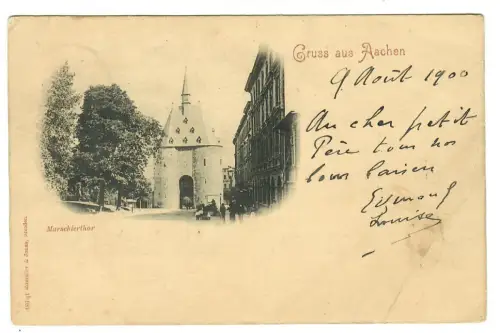 Gruss aus Aachen
9 Août 1900
Au cher petit
Père tous nos
bons
Edmond
Louise
Marschierthor